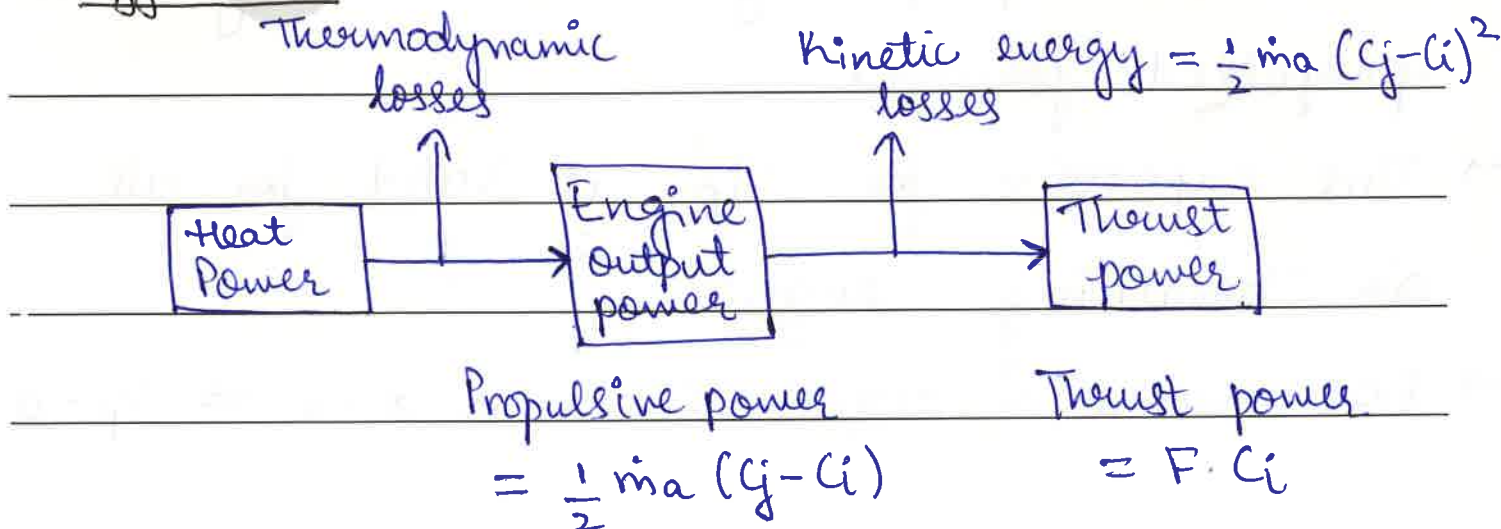 Thermodynamic
losses
Kinetic energy = ½ ṁa (Cj-Ci)²
losses
Heat
Power
Engine
output
power
Thrust
power
Propulsive power
= ½ ṁa (Cj-Ci)
Thrust power
= F. Ci